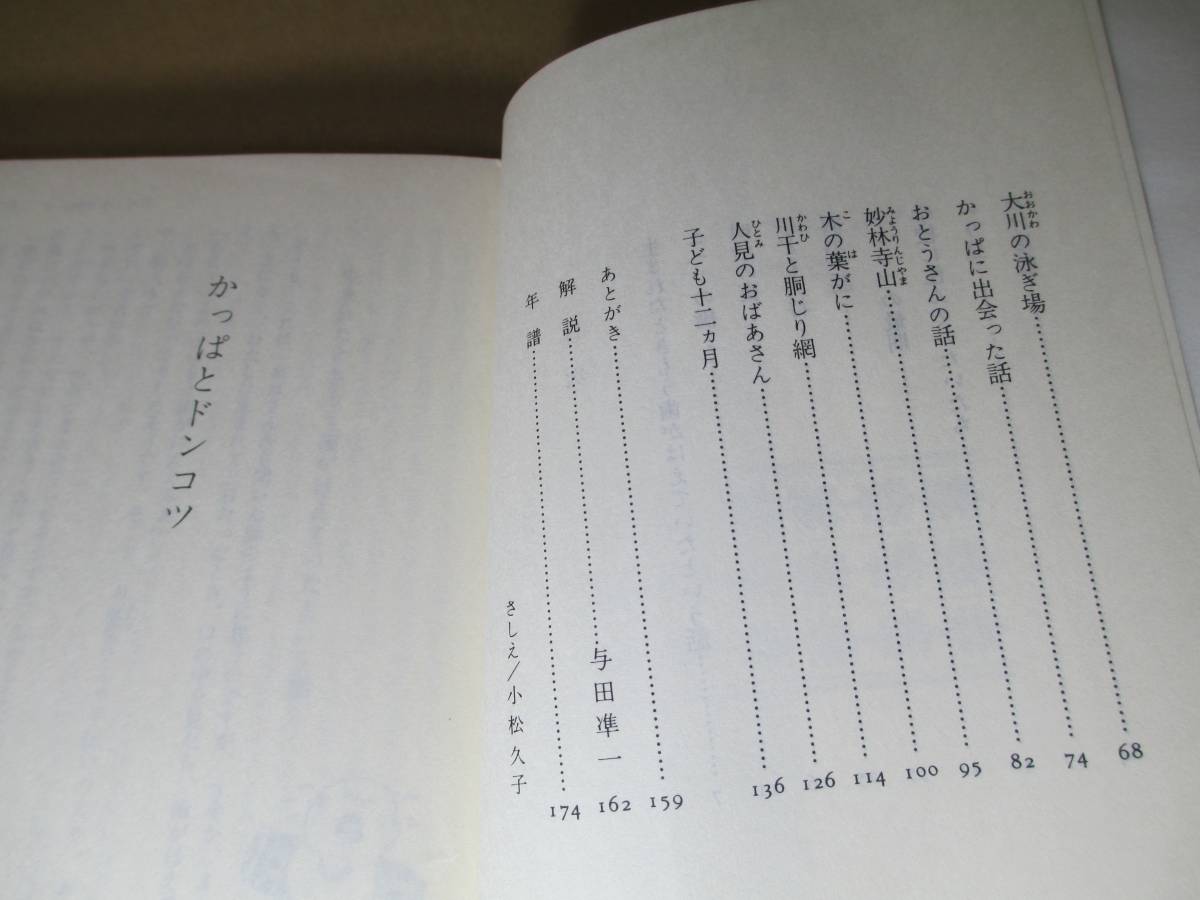 大川の泳ぎ場……68
かっぱに出会った話……74
おとうさんの話……82
妙林寺山……95
木の葉がに……100
川干と胴じり網……114
人見のおばあさん……126
子ども十二ヵ月……136
あとがき……159
解説……与田凖一 162
年譜……174
さしえ/小松久子
かっぱとドンコツ